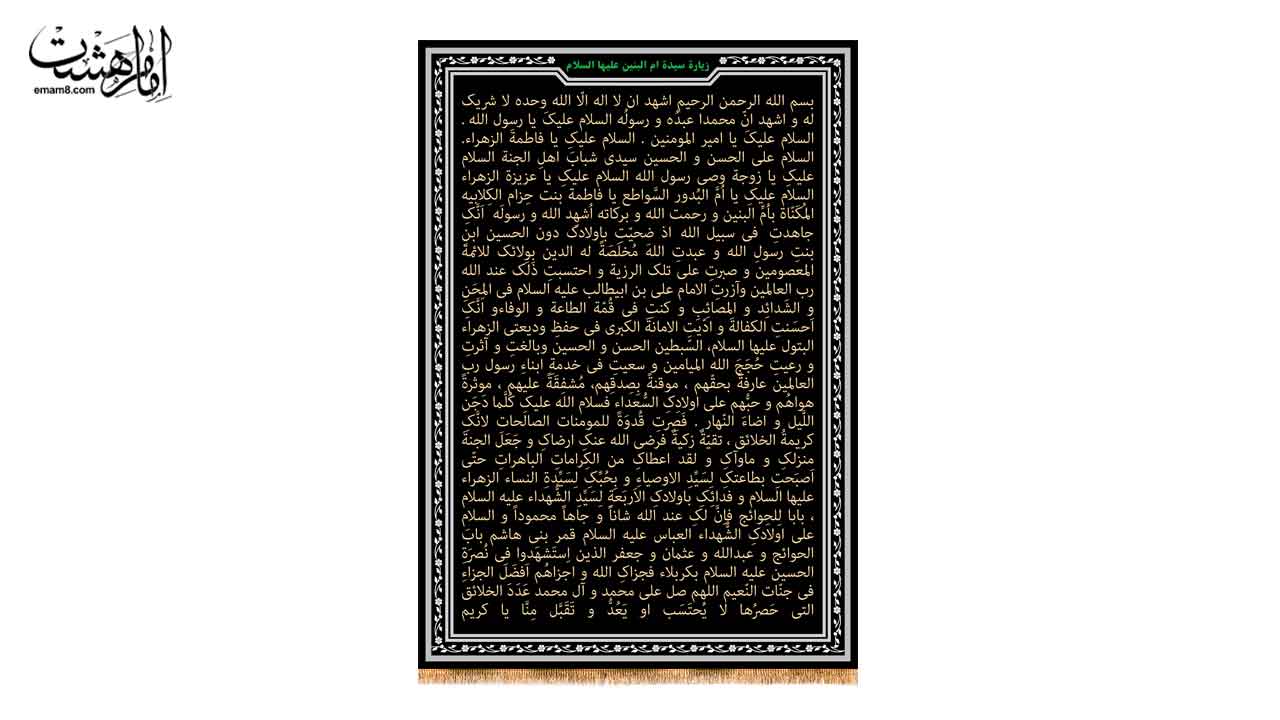 امام هشت
emam8.com
زيارة سيدة ام البنين عليها السلام
بسم الله الرحمن الرحیم اشهد ان لا اله الّا الله وحده لا شریک
له و اشهد انّ محمدا عبدُه و رسولُه السلام علیکَ یا رسول الله .
السلام علیکَ یا امیر المومنین . السلام علیکِ یا فاطمةَ الزهراء.
السلام علی الحسن و الحسین سیدی شبابَ اهلِ الجنة السلام
علیکِ یا زوجة وصی رسول الله السلام علیکِ یا عزیزة الزهراء
السلام علیکِ یا اُمَّ البُدور السَّواطع یا فاطمة بنت حِزام الکِلابیه
المُکَنّاة باُمِّ البنین و رحمت الله و برکاته اُشهِد الله و رسوله اَنَّکِ
جاهدتِ فی سبیل الله اذ ضحیّتِ باولادکَ دون الحسین ابنِ
بنتِ رسولِ الله و عبدتِ اللهَ مُخلَصَةً له الدین بِولائک للائمّة
المعصومین و صبرتِ علی تلک الرزیة و احتسبتِ ذلک عند الله
رب العالمین وآزرتِ الامام علی بن ابیطالب علیه السلام فی المِحَنِ
و الشَدائِد و المصائِبِ و کنتِ فی قُمّة الطاعة و الوفاءو انَّکَ
احسَنتِ الکفالةَ و ادّیتِ الامانةَ الکبری فی حفظ ودیعتی الزهراء
البتول علیها السلام، السّبطین الحسن و الحسین وبالغتِ و آثرتِ
و رعیتِ حُجَجَ الله المیامین و سعیتِ فی خدمةِ ابناءِ رسول ربِ
العالمین عارفةً بحقّهم ، موقنةً بِصِدقِهم، مُشفِقَةً علیهم ، موثرةً
هواهُم و حبُّهم علی اولادکِ السُّعَداء فسلام الله علیک کُلَّما دَجَن
اللَّیل و اضاءَ النّهار . فَصِرتِ قُدوَةً للمومنات الصالحات لانَّکِ
کریمةُ الخلائق ، تقیّةٌ زکیةٌ فَرضی الله عنکِ ارضاکِ و جَعَلَ الجنةَ
منزلکِ و ماواکِ و لقد اعطاکِ من الکَراماتِ الباهراتِ حتّی
اَصبَحتِ بطاعتکِ لسَیِّدِ الاوصیاءِ و بِحُبِّکِ لسَیِّدةِ النساء الزهراء
علیها السلام و فَدائِکِ باولادکِ الاَربَعةِ لِسَیِّدِ الشُّهداء علیه السلام
، بابا للحوائج فإنّ لکِ عند الله شاناً و جاهاً محموداً و السلام
علی اَولادکِ الشُّهداء العباس علیه السلام قمر بنی هاشم بابَ
الحوائج و عبدالله و عثمان و جعفرِ الذین اِستَشهَدوا فی نُصرَةِ
الحسین علیه السلام بکربلاء فجزاکِ الله و اجزاهُم اَفضَلَ الجزاءِ
فی جنّات النّعیم اللهم صل علی محمد و آل محمد عَدَدَ الخلائق
التی حَصرُها لا یُحتَسَب او یَعُدُّ و تَقَبَّل مِنَّا یا کریم